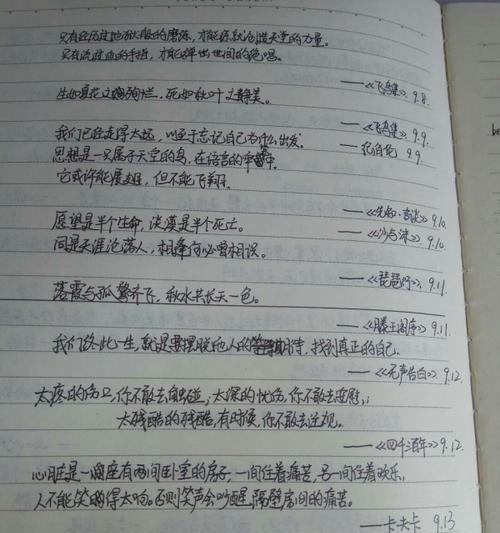 只有经历过地狱般的磨练，才能练就创造天堂的力量。
只有流过血的手指，才能弹出世间的绝唱。
——《飞鸟集》9.8
生如夏花之绚烂，死如秋叶之静美。
——《飞鸟集》9.9
我们已经走得太远，以至于忘记自己为什么出发。
——纪伯伦 9.9
思想是一只属于天空的鸟，在语言的牢中
它或许能展翅，但不能飞翔。
——《先知·》9.10
愿望是半个生命，淡漠是半个死亡。
——《沙与沫》9.10
同是天涯沦落人，相逢何必曾相识。
——《琵琶行》9.11
落霞与孤鹜齐飞，秋水共长天一色。
——《滕王阁序》9.11
我们终此一生，就是要摆脱他人的期待，找到真正的自己。
——《无声告白》9.12
太疼的伤口，你不敢去触碰；太深的忧伤，你不敢去安慰；
太残酷的残酷，有时候，你不敢去注视。
——《四千酒年》9.12
心脏是一座有两间卧室的房子，一间住着痛苦，另一间住着欢乐，
人不能笑得太响。否则笑声会吵醒隔壁房间的痛苦。
——卡夫卡 9.13